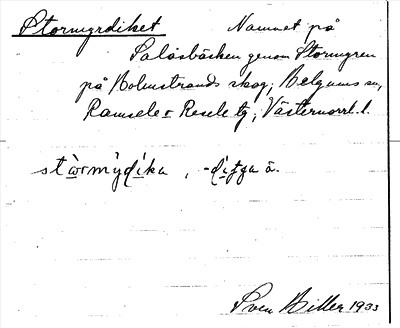 Stormyrdiket Namnet på
Salåsbäcken genom Stormyren
på Bolmstrands skog, Helgums sn,
Ramsele o Resele tg, Västernorrl. l.
stàrmýdíka,
Sven Hiller 1933